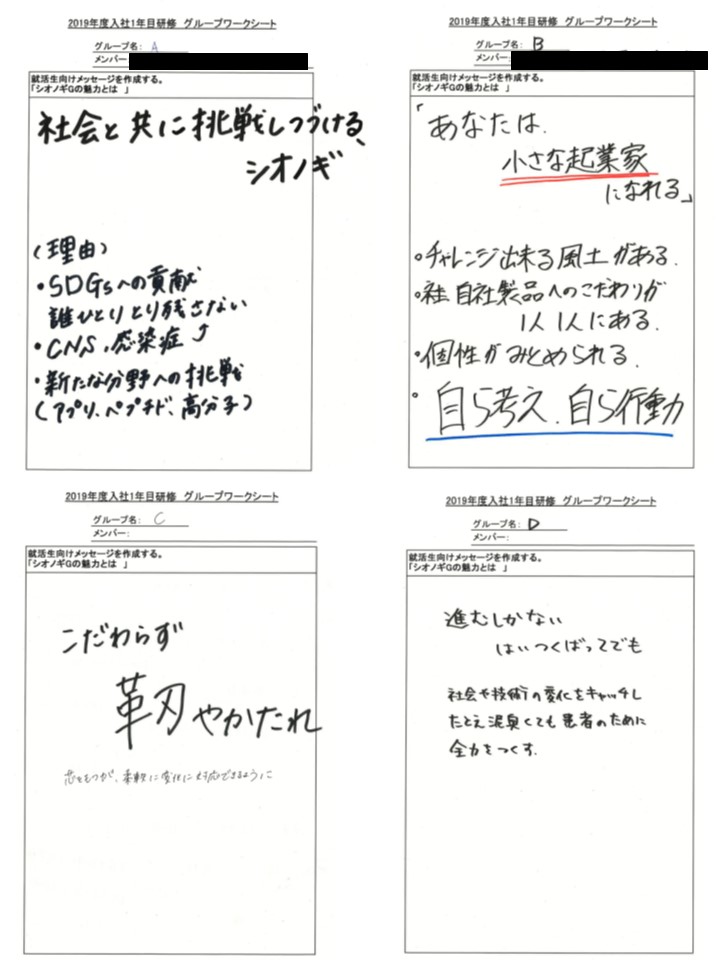 2019年度入社1年目研修　グループワークシート
グループ名： A
メンバー
就活生向けメッセージを作成する。
「シオノギGの魅力とは　」
社会と共に挑戦しつづける、
シオノギ
(理由)
・SDGsへの貢献
誰ひとりとり残さない
・CNS、感染症
・新たな分野への挑戦
(アプリ、ペプチド、高分子)
2019年度入社1年目研修　グループワークシート
グループ名： B
メンバー
就活生向けメッセージを作成する。
「シオノギGの魅力とは　」
「あなたは、
小さな起業家
になれる」
・チャレンジ出来る風土がある.
・自社製品へのこだわりが
1人1人にある.
・個性がみとめられる.
・自ら考え、自ら行動
2019年度入社1年目研修　グループワークシート
グループ名： C
メンバー：
就活生向けメッセージを作成する。
「シオノギGの魅力とは　」
こだわらず
革刃やかたれ
芯をもつが、柔軟に変化に対応できるように
2019年度入社1年目研修　グループワークシート
グループ名： D
メンバー：
就活生向けメッセージを作成する。
「シオノギGの魅力とは　」
進むしかない
はいつくばってでも
社会や技術の変化をキャッチし
たとえ泥臭くても患者のために
全力をつくす.